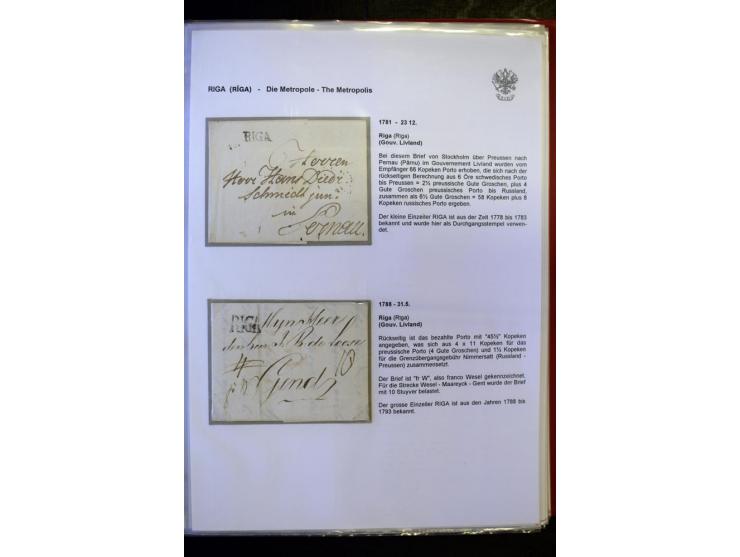 RIGA (RĪGA) - Die Metropole - The Metropolis
1781 - 23 12.
Riga (Riga)
(Gouv. Livland)
Bei diesem Brief von Stockholm über Preussen nach
Pernau (Pärnu) im Gouvernement Livland wurden vom
Empfänger 66 Kopeken Porto erhoben, die sich nach der
rückseitigen Berechnung aus 6 Öre schwedisches Porto
bis Preussen = 2½ preussische Gute Groschen, plus 4
Gute Groschen preussisches Porto bis Russland,
zusammen als 6½ Gute Groschen = 58 Kopeken plus 8
Kopeken russisches Porto ergeben.
Der kleine Einzeiler RIGA ist aus der Zeit 1778 bis 1783
bekannt und wurde hier als Durchgangsstempel verwen-
det.
RIGA
Herren
Herr Hans Died:
Schmidt jun:
in
Pernau.
1788 - 31.5.
Riga (Riga)
(Gouv. Livland)
Rückseitig ist das bezahlte Porto mit "45½" Kopeken
angegeben, was sich aus 4 x 11 Kopeken für das
preussische Porto (4 Gute Groschen) und 1½ Kopeken
für die Grenzübergangsgebühr Nimmersatt (Russland -
Preussen) zusammensetzt.
Der Brief ist "fr W", also franco Wesel gekennzeichnet.
Für die Strecke Wesel - Maareyck - Gent wurde der Brief
mit 10 Stuyver belastet.
Der grosse Einzeiler RIGA ist aus den Jahren 1788 bis
1793 bekannt.
RIGA
Myn Heer
10
Gend